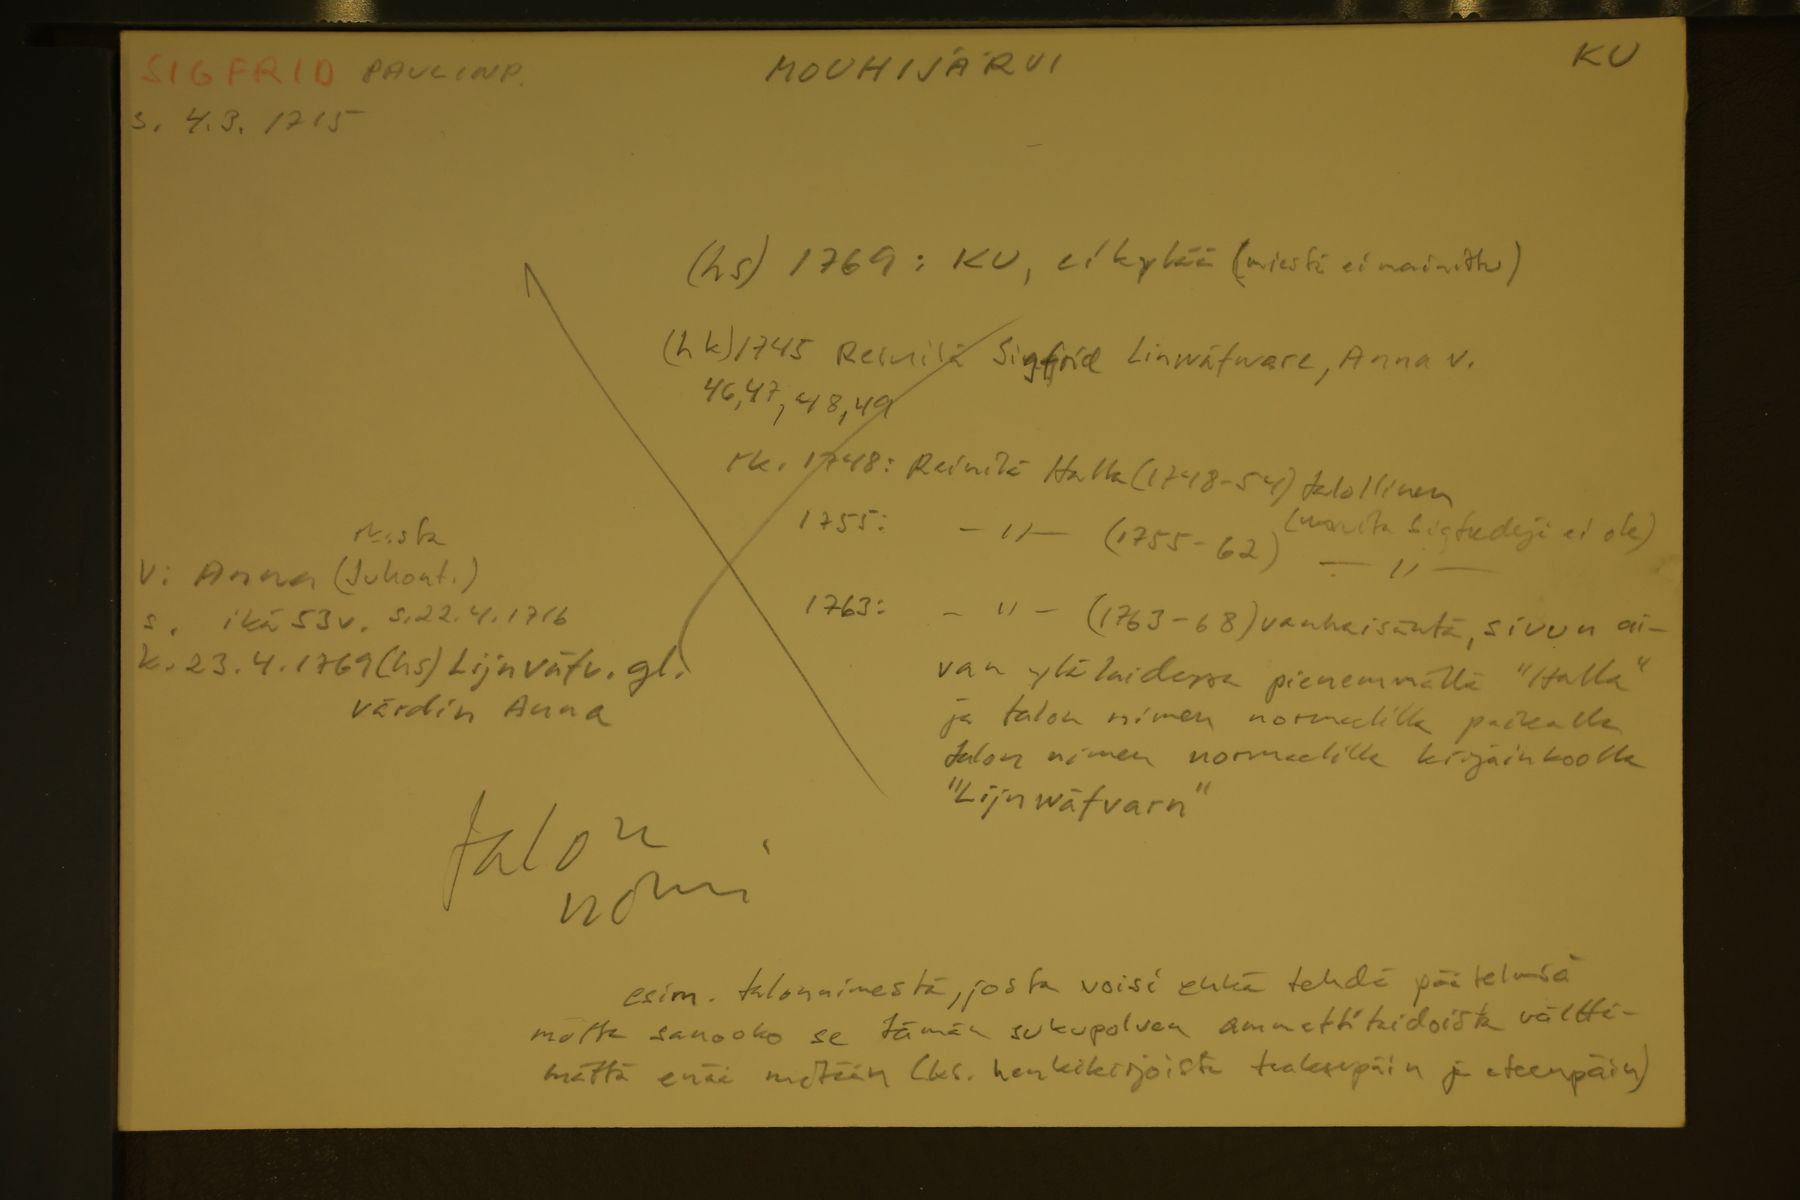 SIGFRID PAULINP. MOUHIJÄRVI KU
s. 4.3. 1715
(hs) 1769: KU, ei kykää (miestä ei mainittu)
(hk) 1745 Reinilä Sigfrid Linwäfware, Anna v.
46, 47, 48, 49
rk. 1748: Reinilä Halla (1748-54) talollinen
(muita Sigfredejä ei ole)
1755: -"- (1755-62) -"-
1763: -"- (1763-68) vanhaisäntä, sivun ai-
van ylälaidassa pienemmällä "Halla"
ja talon nimen normaalilla paikalla
talon nimen normaalilla kirjainkoolla
"Lijnwäfvarn"
rk:sta
v: Anna (Juhont.)
s. ikä 53 v. s. 22.4.1716
k. 23.4.1769 (hs) Lijnväfv. gl.
värdin Anna
talon
nimi
esim. talonnimestä, josta voisi ehkä tehdä päätelmiä
mutta sanooko se tämän sukupolven ammattitaidoista vältti-
mättä enää mitään (ks. henkikirjoista taaksepäin ja eteenpäin)